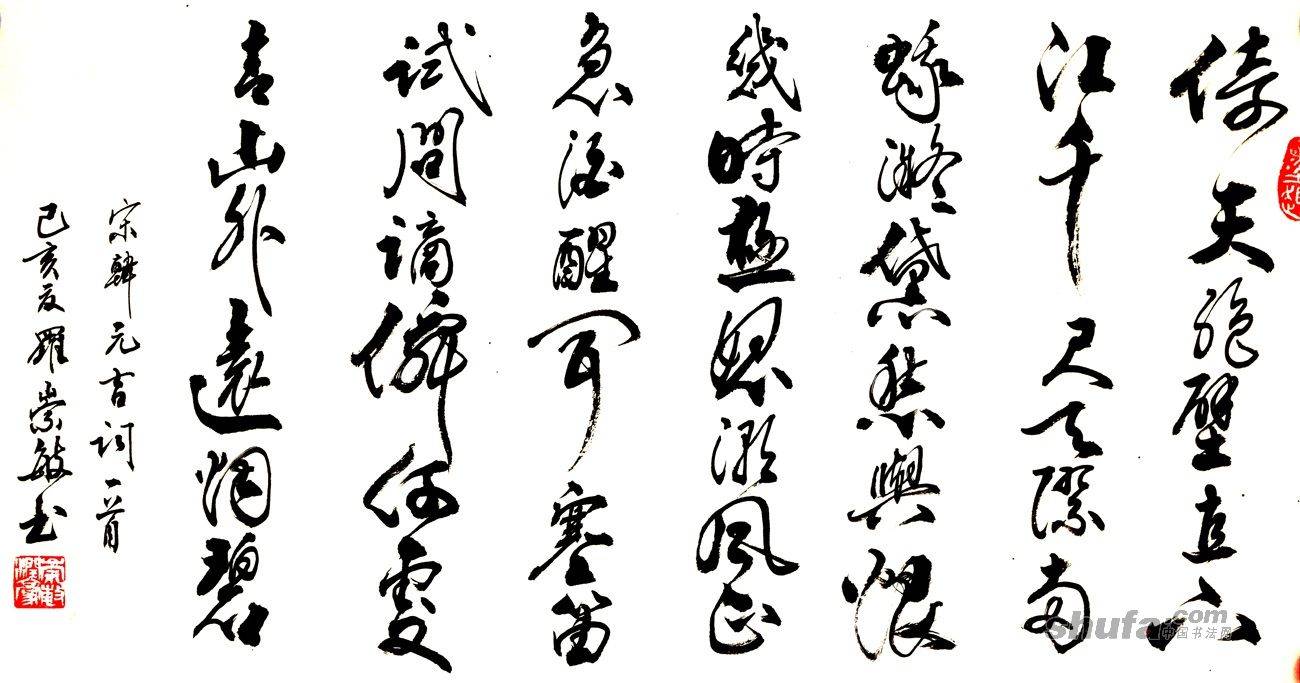 倚天絕壁直下
江千尺天際兩
蛾凝黛愁與恨
幾時極怒潮風正
急酒醒聞塞笛
試問謫僊何處
青山外遠烟碧
宋韓元吉詞一首
己亥夏羅崇敏书
shufa.com
中国书法网